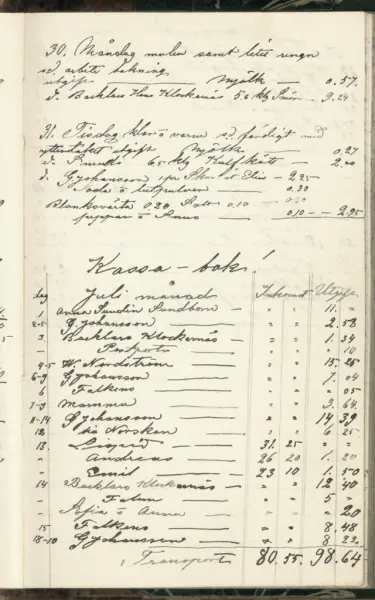 30. Måndag mulen samt litet regn
sd. arbete bakning
utgift Mjölk — 0.57.
d. Backlars Hans Klockarnäs 5.6 kg Smör - 9.24
31. Tisdag klar o varm sd. färdigt med
yttertaket utgift Mjölk — 0.27
d. Smeds 6.5 kg Kalfkött —
d. Gjohansson 1 par Skor åt Elin — 2.25
soda o lutpulver — 0.30
Blanksvärta 0.20 Salt 0.10 — 0.30
peppar o Anus — 0.10 — 2.95
Kassa-bok!
dag Juli månad Inkomst Utgift
1 Anna Sundin Sundborn — " " 11. "
2-5 Gjohansson — " " 2.58
3. Backlars Klockarnäs — " " 1.34
— Postporto — " " " 10
4-5 W. Nordström — " " 15.24
6-9 Gjohansson — " " 7.04
6 Falkens — " " " 05
7-9 Mamma — " " 3.64
11-14 Gjohansson — " " 14.39
12 Norsken — " " 6 25
13. Sigrid — 31. 25 " "
" Andreas — 26 20 1. 20
— Emil — 23 10 1. 50
14 Backlars Klockarnäs — " " 12 40
— Falun — " " 5 "
— Sofia o Anna — " " " 20
15 Falkens — " " 8.48
18-10 Gjohansson — " " 8 22
Transport 80.55. 98.64